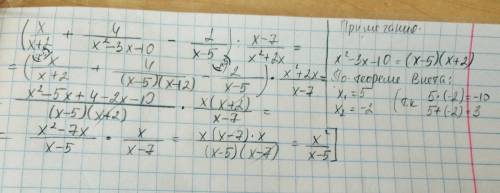 (x/(x+2) + 4/(x²-3x-10) - 2/(x-5)) : (x-7)/(x²+2x) =
= (x/(x+2) + 4/((x-5)(x+2)) - 2/(x-5)) · (x²+2x)/(x-7) =
(x²-5x+4-2x-10)/((x-5)(x+2)) · x(x+2)/(x-7) =
(x²-7x)/(x-5) · x/(x-7) = x(x-7)·x/((x-5)(x-7)) = x²/(x-5)
Примечание:
x²-3x-10=(x-5)(x+2)
По теореме Виета:
x₁=5
x₂=-2
(т.к 5·(-2)=-10
5+(-2)=3